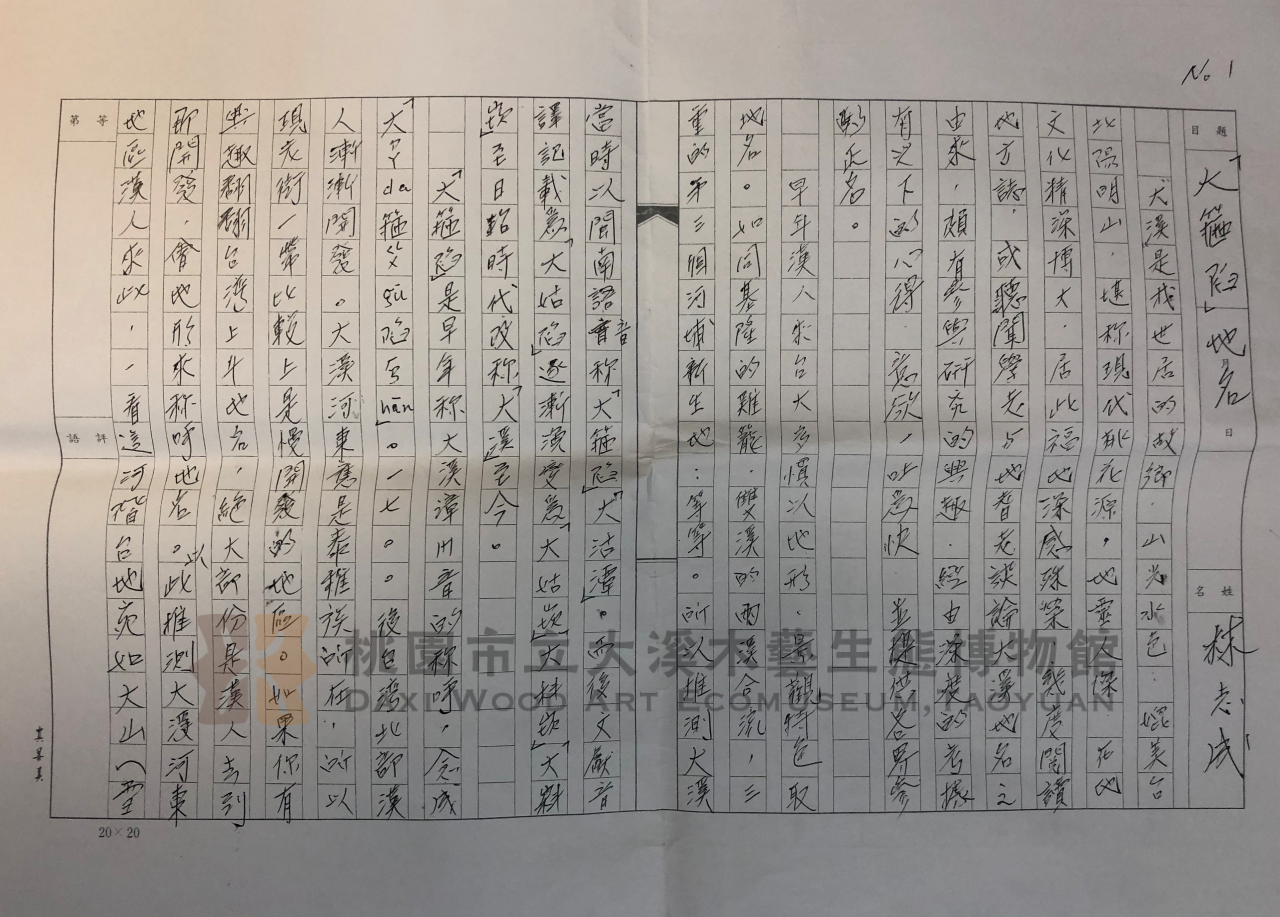 No 1
題目
「大箍陷」地名
月
日
姓名
林志成
大溪是我世居的故鄉．山光水色．媲美台
北陽明山．堪称現代桃花源，地靈人傑．在地
文化精深博大．居此福地深感殊榮．態度閱讀
地方誌．或聽聞學老与地耆老談論大溪地名之
由來，頗有參與研究的興趣．經由深裝的考據
有以下的心得．意欣一吐為快．並提供各界參
酌正名。
早年漢人來台大多慣以地形．景觀特色取
地名。如同基隆的雞籠．雙溪的兩溪合流，三
重的第三個河埔新生地：等等。所以推測大溪
當時以閩南語音称「大箍陷」「大沽潭」。而後文獻音
譯記載為「大姑陷」逐漸演變為「大姑崁」「大科崁」「大嵙
崁」至日治時代改称「大溪」至今。
「大箍陷」是早年称大溪漳州音的称呼，念成
「大ㄚda箍ㄍgū陷ㄢhān」。一七。。後台灣北部漢
人漸漸開發。大漢河東舊是泰雅族所在，所以
現老街一帶比較上是慢開發的地區。如果你有
興趣翻翻台灣上斗地名，絕大部份是漢人去到
所開發，會地形來称呼地名。以此推測大漢河東
地區漢人來此，一看這河階台地宛如大山（雪
等第
評語
20×20
桃園市立大溪木藝生態博物館
DAXI WOOD ART ECOMUSEUM, TAOYUAN